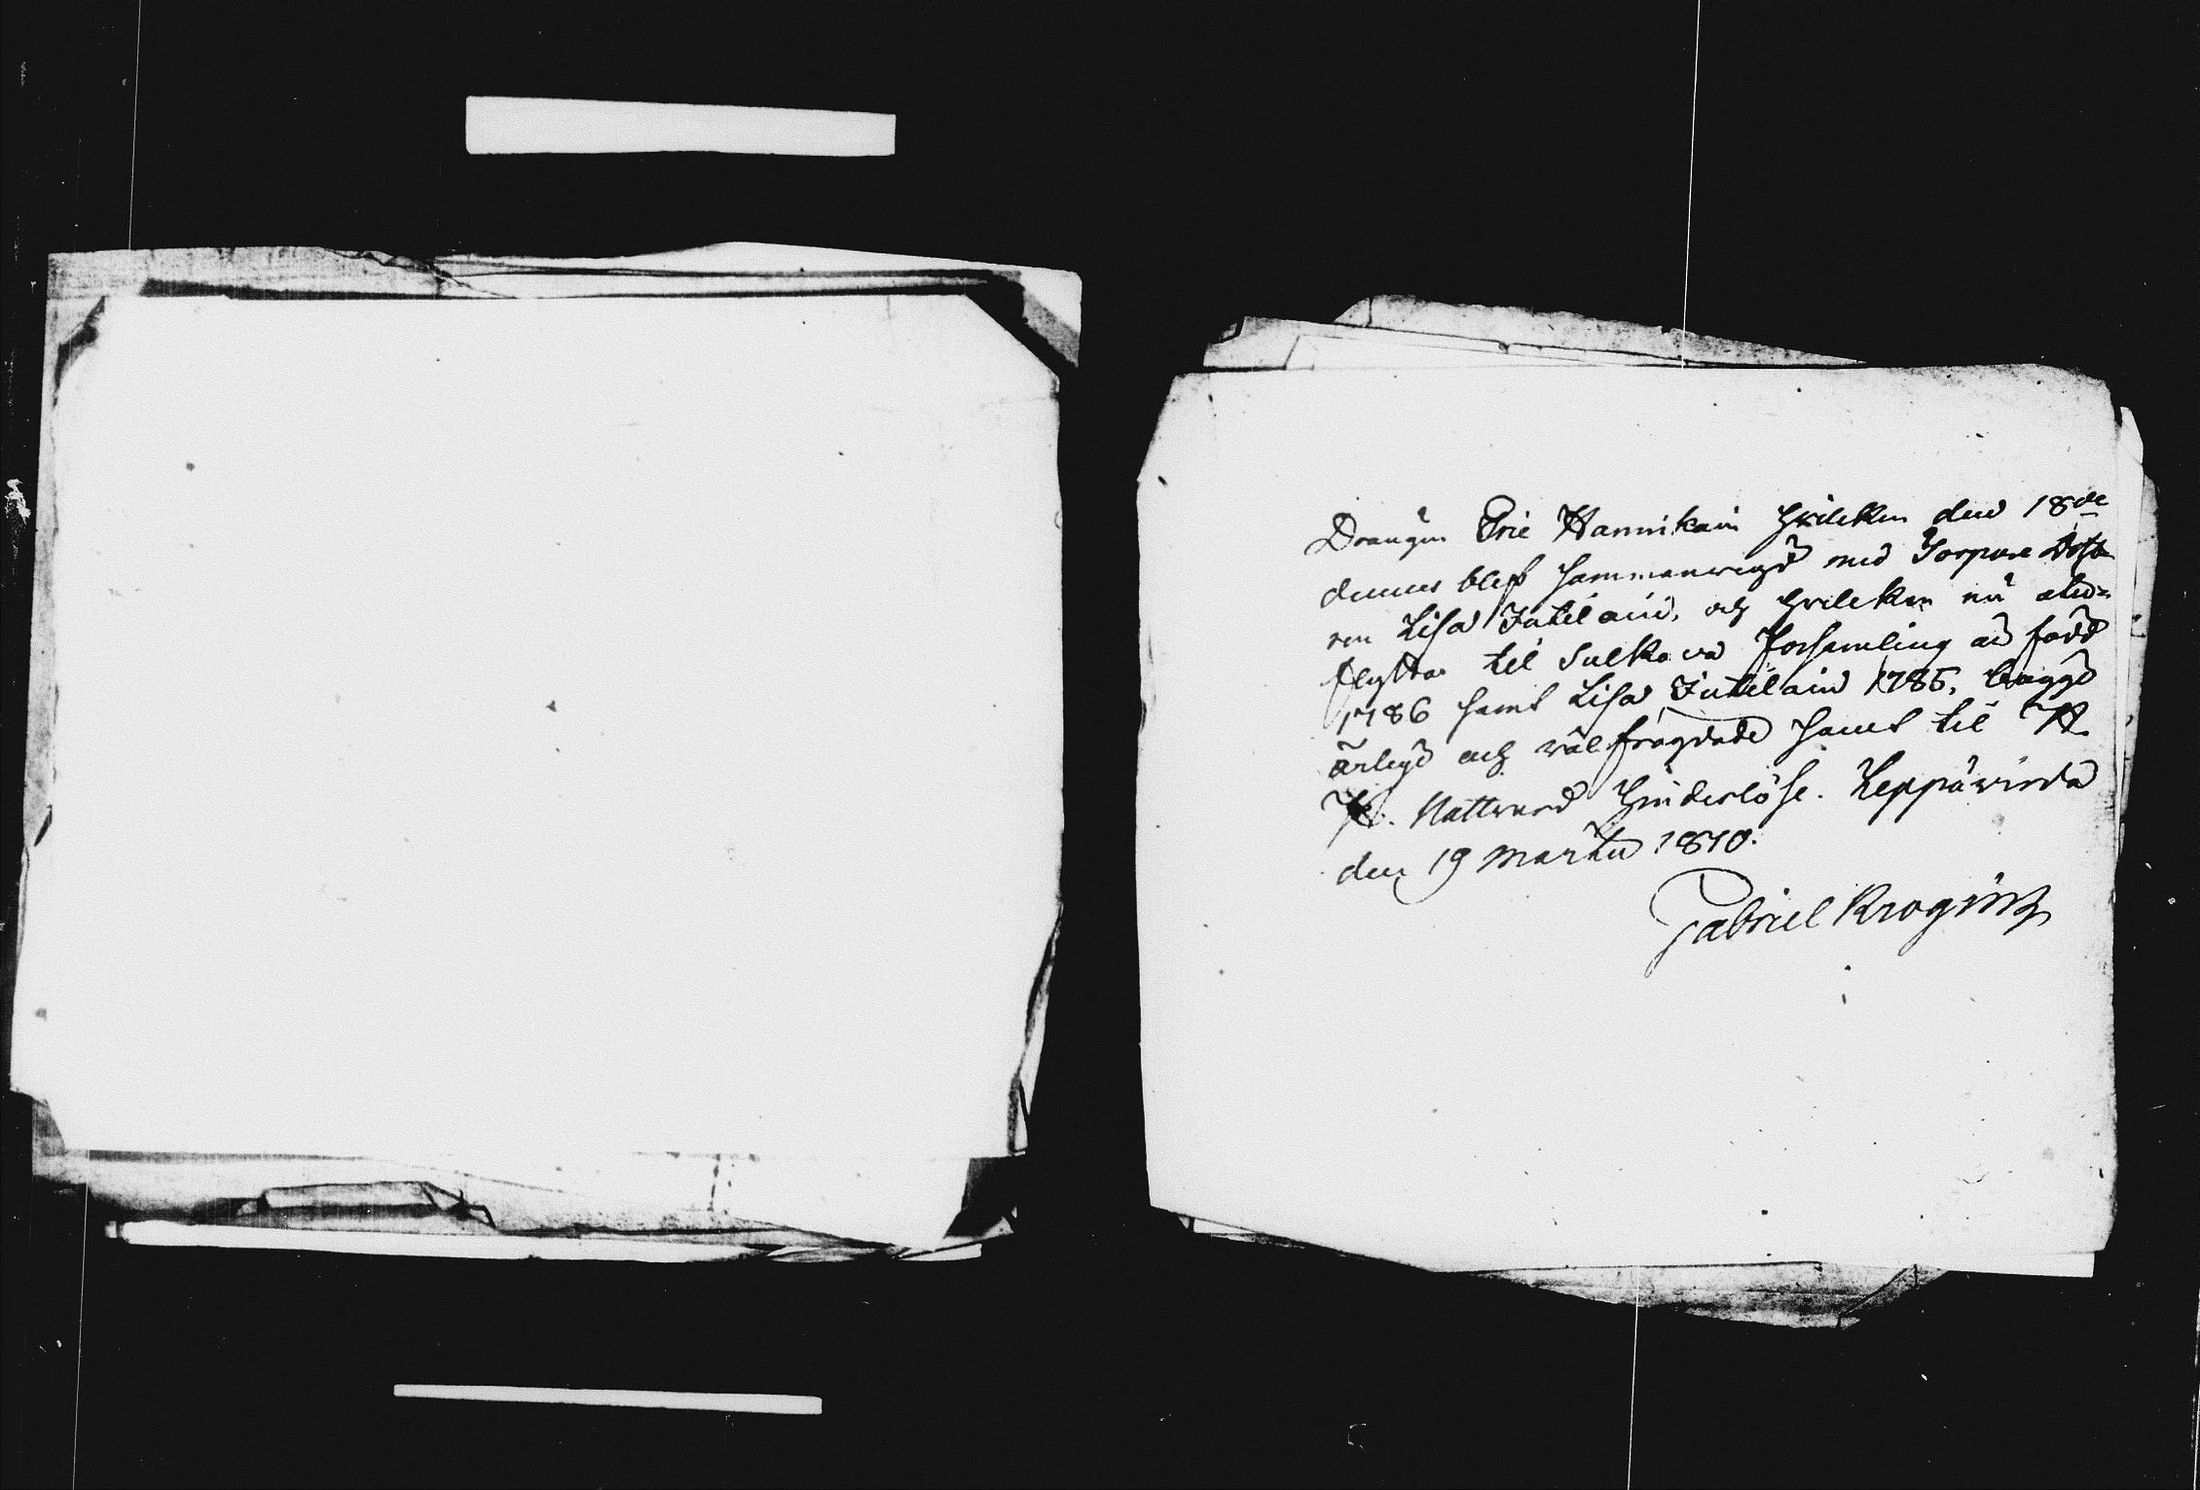 Drängen Eric Hannikain hvilken den 18de
dennes blef sammanvigd med Torpare dott
ren Lisa Intilain, och hvilken nu åter=
flyttar til Sulkava Församling är född
1786 samt Lisa Intilain 1785, bägge
ärlige och väl frägdade samt til H.
H. Nattvard hinderlöse. Leppävirda
den 19 Martii 1810.
Gabriel Krogius